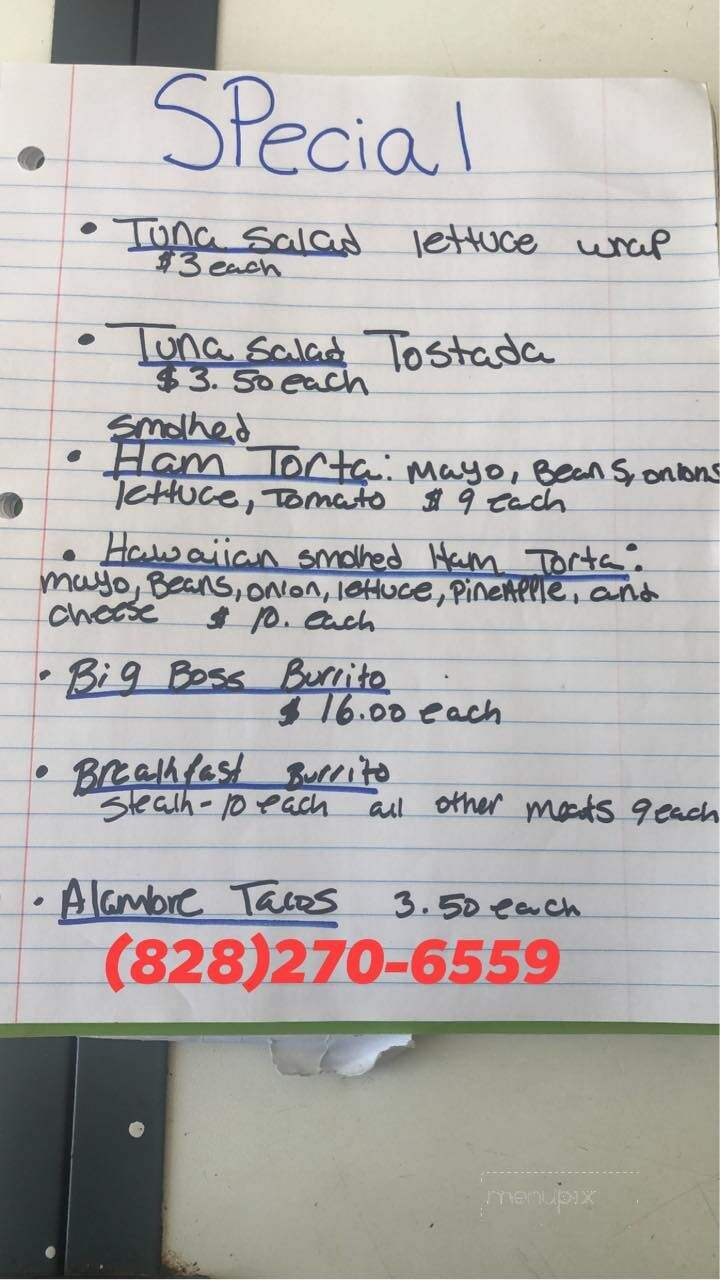 SPecial
• Tuna Salad lettuce wrap
$3 each
• Tuna Salad Tostada
$3.50 each
smolhed
• Ham Torta: mayo, Beans, onions
lettuce, Tomato $9 each
• Hawaiian smolhed Ham Torta:
mayo, Beans, onion, lettuce, PineAPPle, and
cheese $10. each
• Big Boss Burrito
$16.00 each
• Brealhfast Burrito
Stealh-10 each all other meats 9 each
• Alambre Tacos 3.50 each
(828)270-6559
menupix